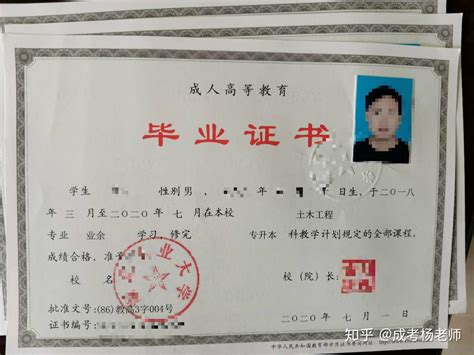 成人高等教育
毕业证书
学生 性别男, 年 日生,于二〇一八
年 三 月至二〇二〇年 七 月在本校 土木工程
专业 业余 学习,修完 专升本 科教学计划规定的全部课程,
成绩合格,准
业大学
校(院)长:
批准文号:(86)教高3字004号
证书编号:
二〇二〇年 七 月 一 日
中华人民共和国教育部学历证书查询网址:
知乎 @成考杨老师